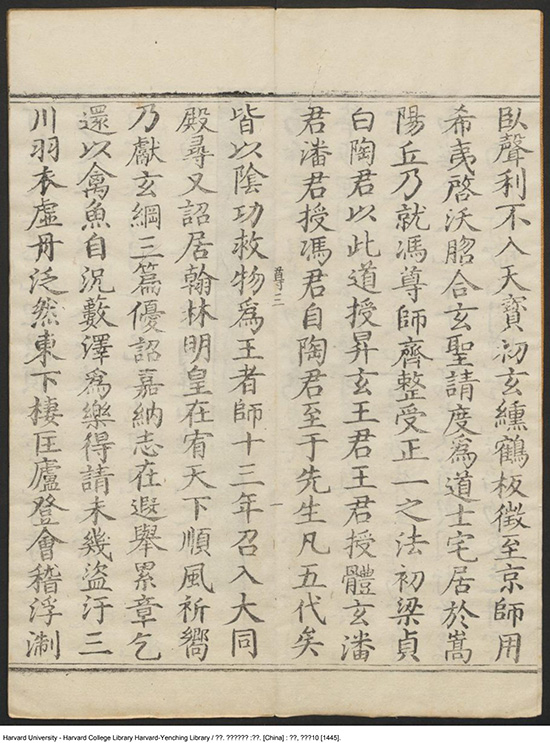 臥聲利不入天寶初玄纁鶴板徵至京師用
希夷啓沃脗合玄聖請度爲道士宅居於嵩
陽丘乃就馮尊師齊整受正一之法初梁貞
白陶君以此道授昇玄王君王君授體玄潘
君潘君授馮君自陶君至于先生凡五代矣
尊三
一
皆以陰功救物爲王者師十三年召入大同
殿尋又詔居翰林明皇在宥天下順風祈嚮
乃獻玄綱三篇優詔嘉納志在遐舉累章乞
還以禽魚自況藪澤爲樂得請未幾盜汙三
川羽衣虛舟泛然東下棲匡廬登會稽浮淛
Harvard University - Harvard College Library Harvard-Yenching Library / ??. ?????? :??. [China] : ??, ???10 [1445].